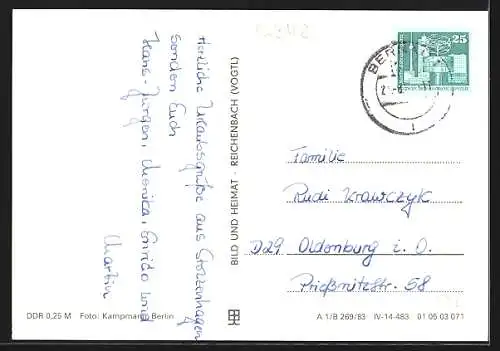 Herzliche Urlaubsgrüße aus Stolzenhagen
senden Euch
Hans-Jürgen, Monika, Guido und
Martin
BILD UND HEIMAT · REICHENBACH (VOGTL)
25
BER
Familie
Rudi Krawczyk
D29 Oldenburg i. O.
Prießnitzstr. 58
DDR 0,25 M Foto: Kampmann, Berlin
A 1/B 269/83 IV-14-483 01 05 03 071